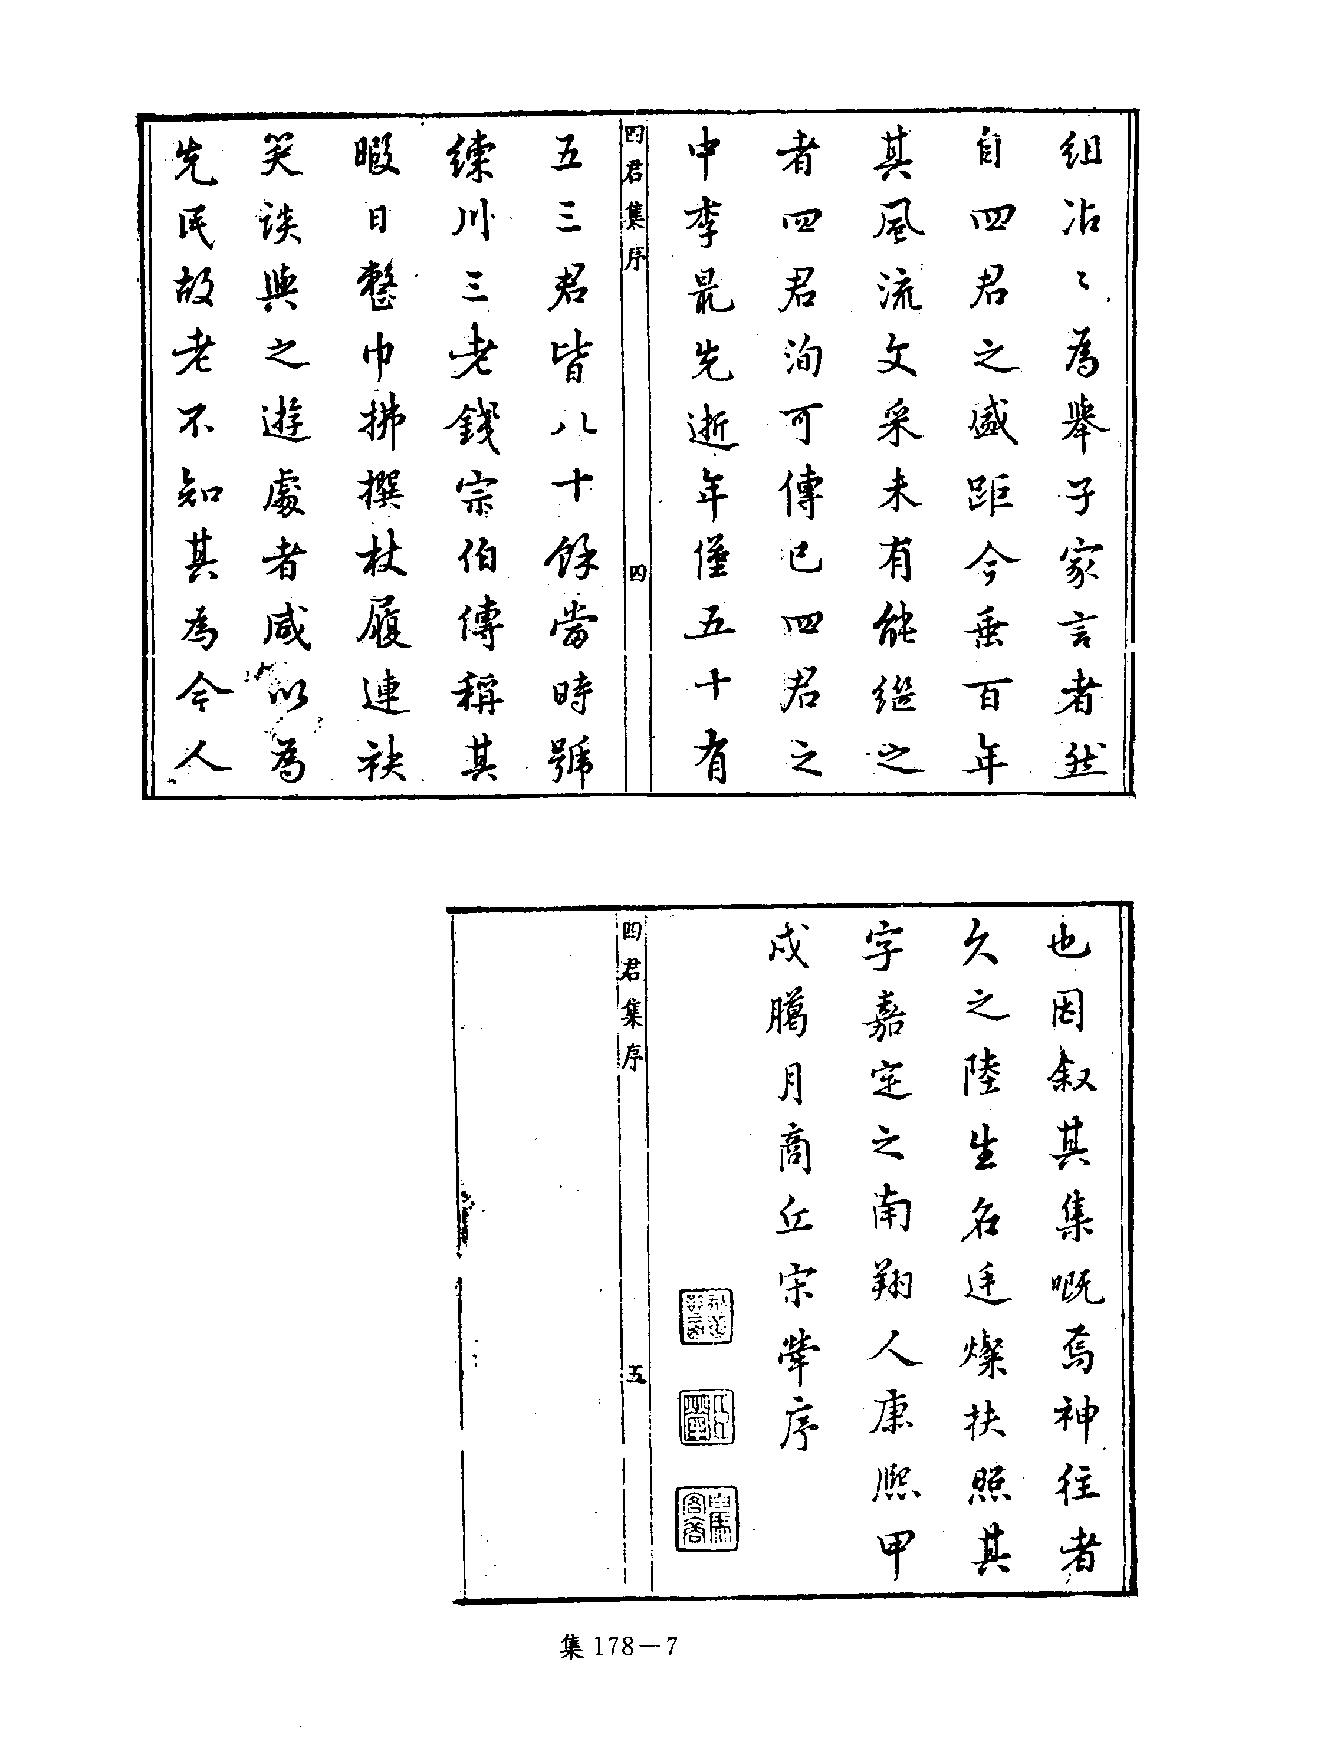 組沾〻為舉子家言者然
自四君之盛距今垂百年
其風流文采未有能繼之
者四君洵可傳已四君之
中李最先逝年僅五十有
四君集序
四
五三君皆八十餘當時號
練川三老錢宗伯傳稱其
暇日整巾拂撰杖履連袂
笑談與之遊處者咸以為
先民故老不知其為今人
也因叙其集嘅焉神往者
久之陸生名廷燦扶照其
字嘉定之南翔人康熙甲
戌臈月商丘宋犖序
四君集序
五
集 178－7